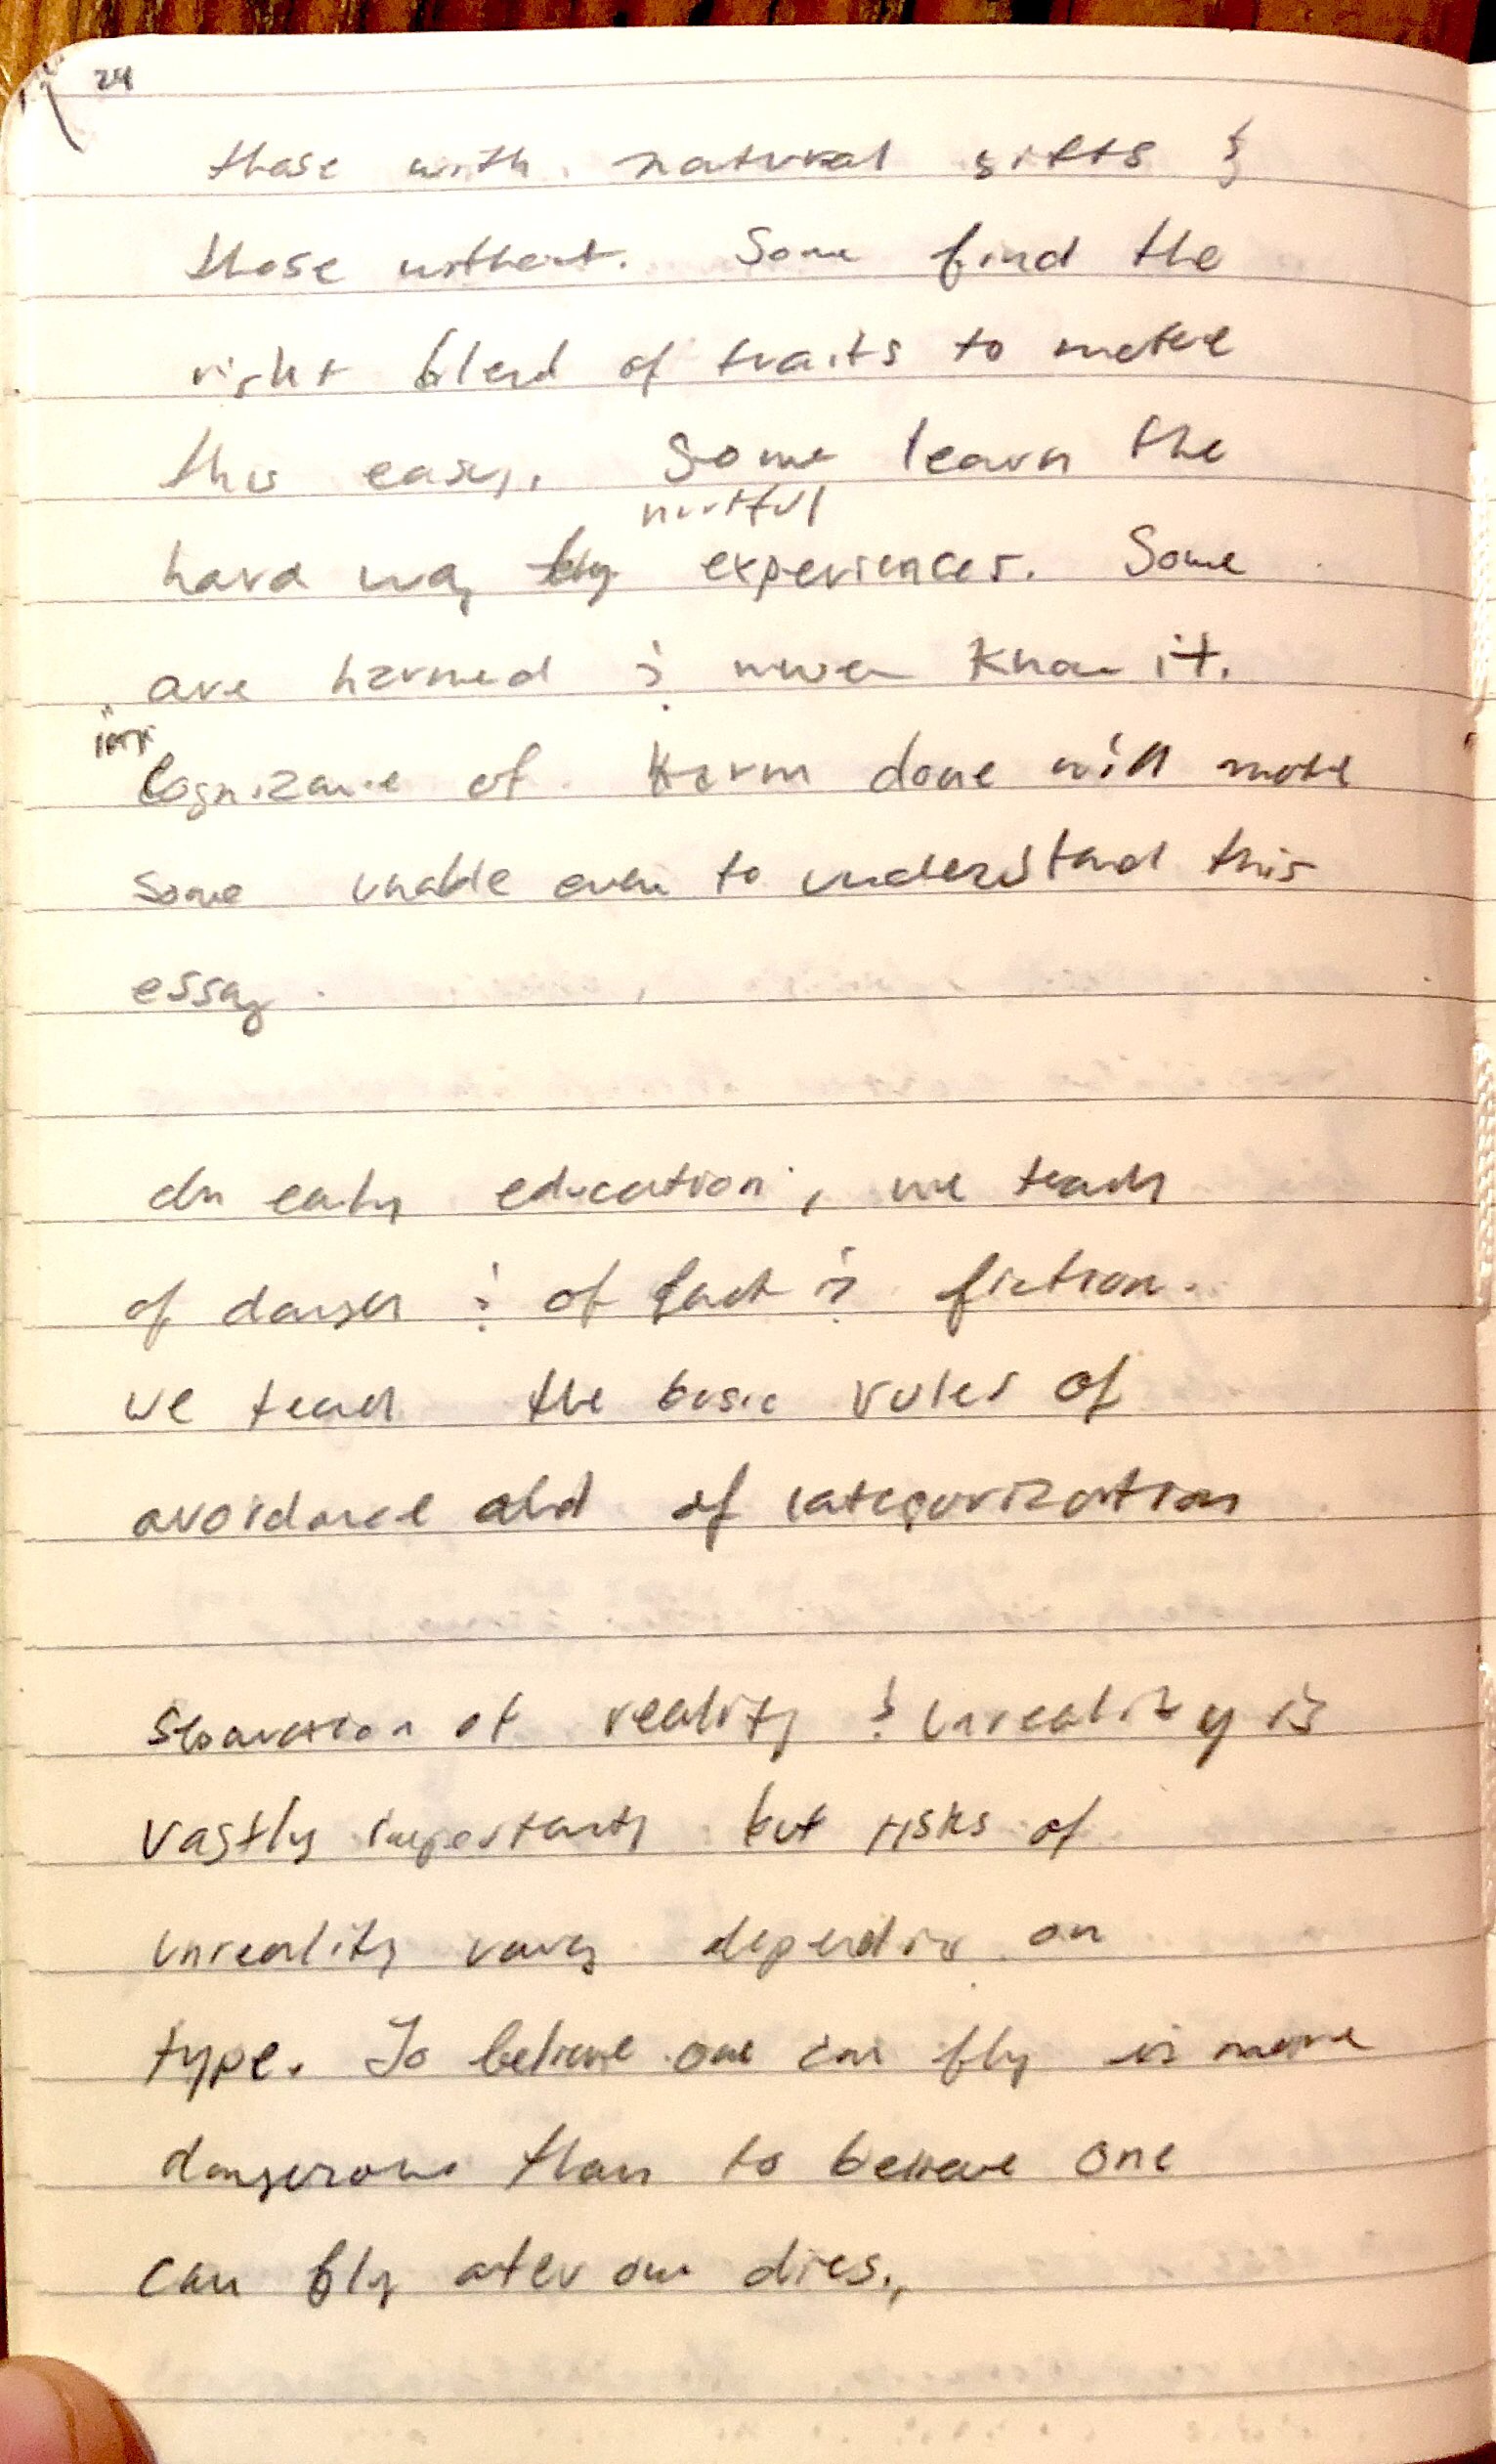 24
those with natural gifts &
those without. Some find the
right blend of traits to make
this easy. Some learn the
hurtful
hard way by experiences. Some
are harmed & never know it.
Cognizance of Harm done will make
some unable even to understand this
essay.
In early education, we teach
of danger & of fact & fiction.
we teach the basic rules of
avoidance and of categorization
Separation of reality & unreality is
vastly important but risks of
unreality vary depending on
type. To believe one can fly is more
dangerous than to believe one
can fly after one dies.